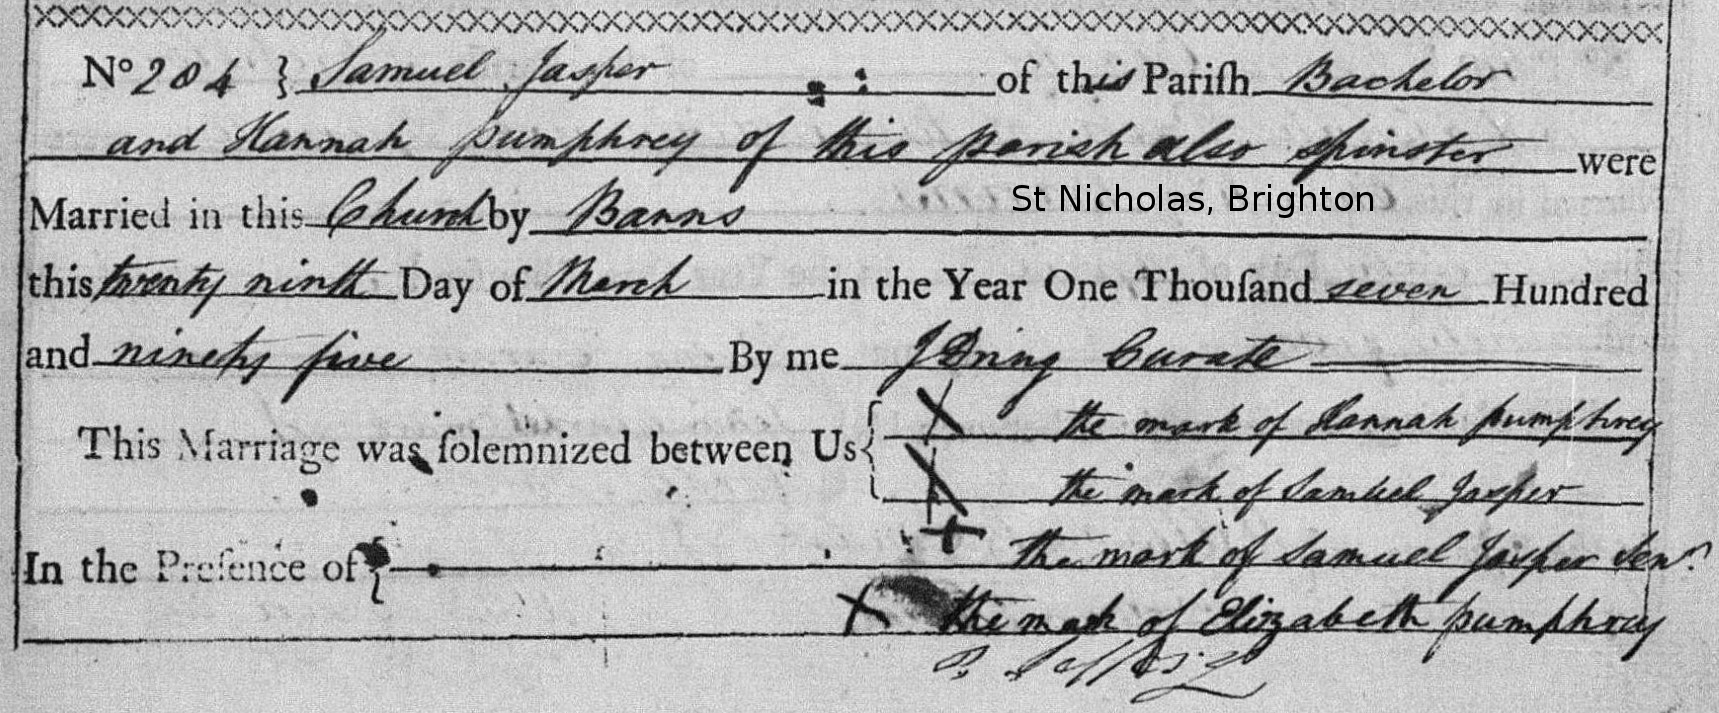 No 204 } Samuel Jasper of this Pariſh Bachelor
and Hannah pumphrey of this parish also spinster were
St Nicholas, Brighton
Married in this Church by Banns
this twenty ninth Day of March in the Year One Thouſand seven Hundred
and ninety five By me J Dring Curate
This Marriage was ſolemnized between Us { X the mark of Hannah pumphrey
X the mark of Samuel Jasper
In the Preſence of { + the mark of Samuel Jasper Senr
X the mark of Elizabeth pumphrey